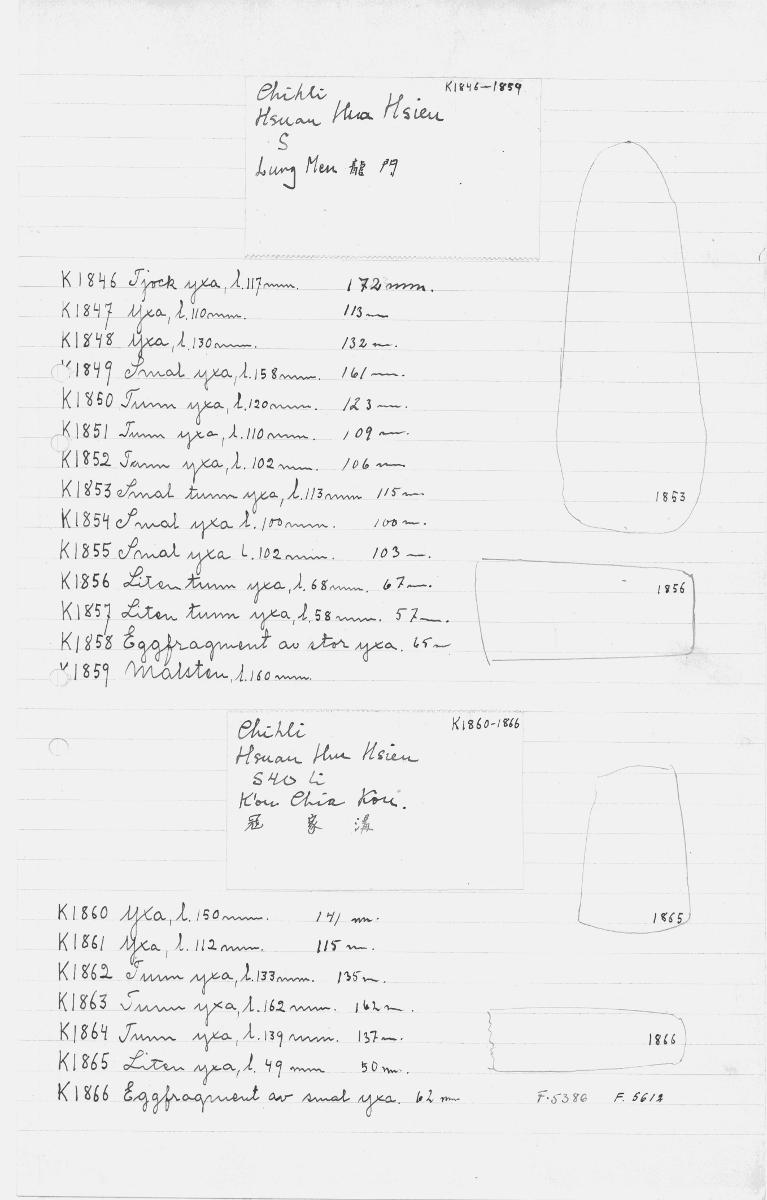 K1846-1859
Chihli
Hsuan Hua Hsien
S
Lung Men 龍 門
K1846 Tjock yxa, l.117mm. 172mm.
K1847 Yxa, l.110mm. 113m
K1848 Yxa, l.130mm. 132m.
K1849 Smal yxa, l.158mm. 161m.
K1850 Tunn yxa, l.120mm. 123m.
K1851 Tunn yxa, l.110mm. 109m.
K1852 Tunn yxa, l.102mm. 106m
K1853 Smal tunn yxa, l.113mm 115m
1853
K1854 Smal yxa l.100mm. 100m.
K1855 Smal yxa l.102mm. 103m.
K1856 Liten tunn yxa, l.68mm. 67m.
1856
K1857 Liten tunn yxa, l.58mm. 57m.
K1858 Eggfragment av stor yxa. 65m
K1859 Målsten, l.160mm.
K1860-1866
Chihli
Hsuan Hua Hsien
S40 li
K'ou Chia Kou.
冦 家 溝
1865
K1860 Yxa, l.150mm. 141 m.
K1861 Yxa, l.112mm. 115m.
K1862 Tunn yxa, l.133mm. 135m.
K1863 Tunn yxa, l.162mm. 162m.
K1864 Tunn yxa, l.139mm. 137m.
1866
K1865 Liten yxa, l. 49 mm 50m.
K1866 Eggfragment av smal yxa. 62m
F.5386 F.5612